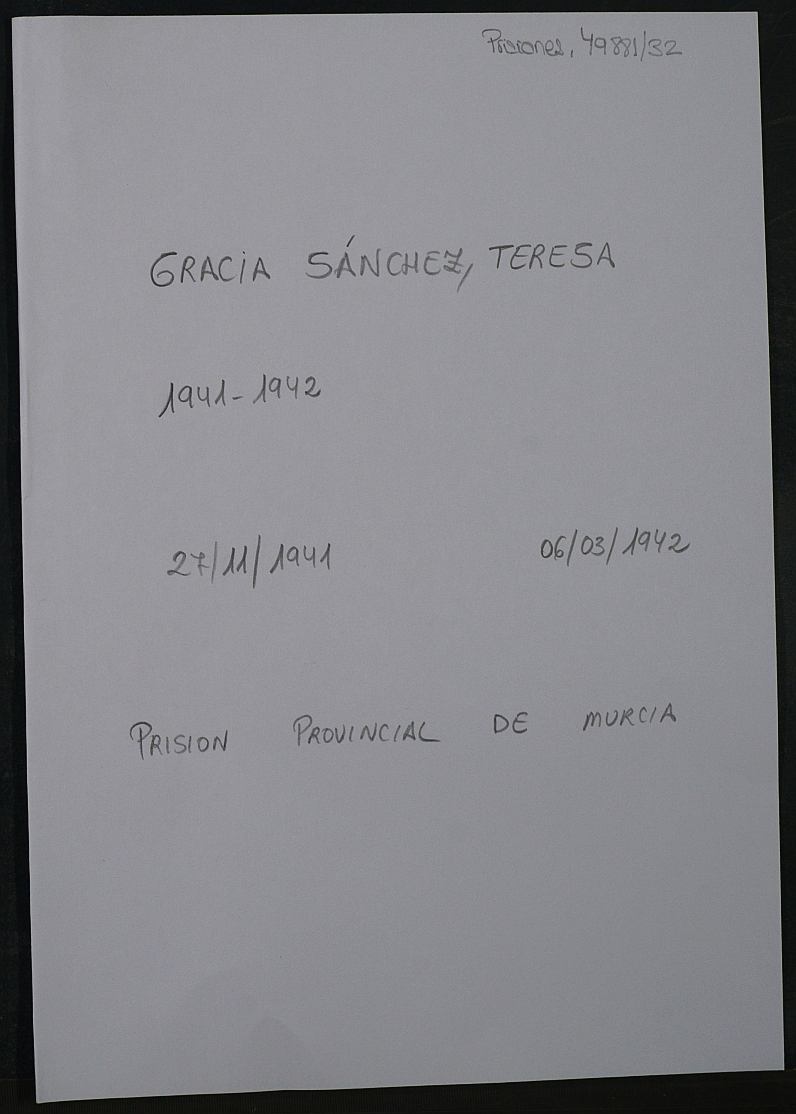 Prisiones, 49881/32
GRACIA SÁNCHEZ, TERESA
1941-1942
27/11/1941 06/03/1942
PRISION PROVINCIAL DE MURCIA